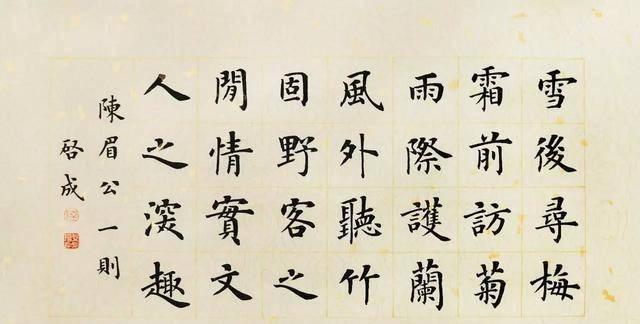 雪後尋梅
霜前訪菊
雨際護蘭
風外聽竹
固野客之
閒情實文
人之深趣
陳眉公一則
啓成